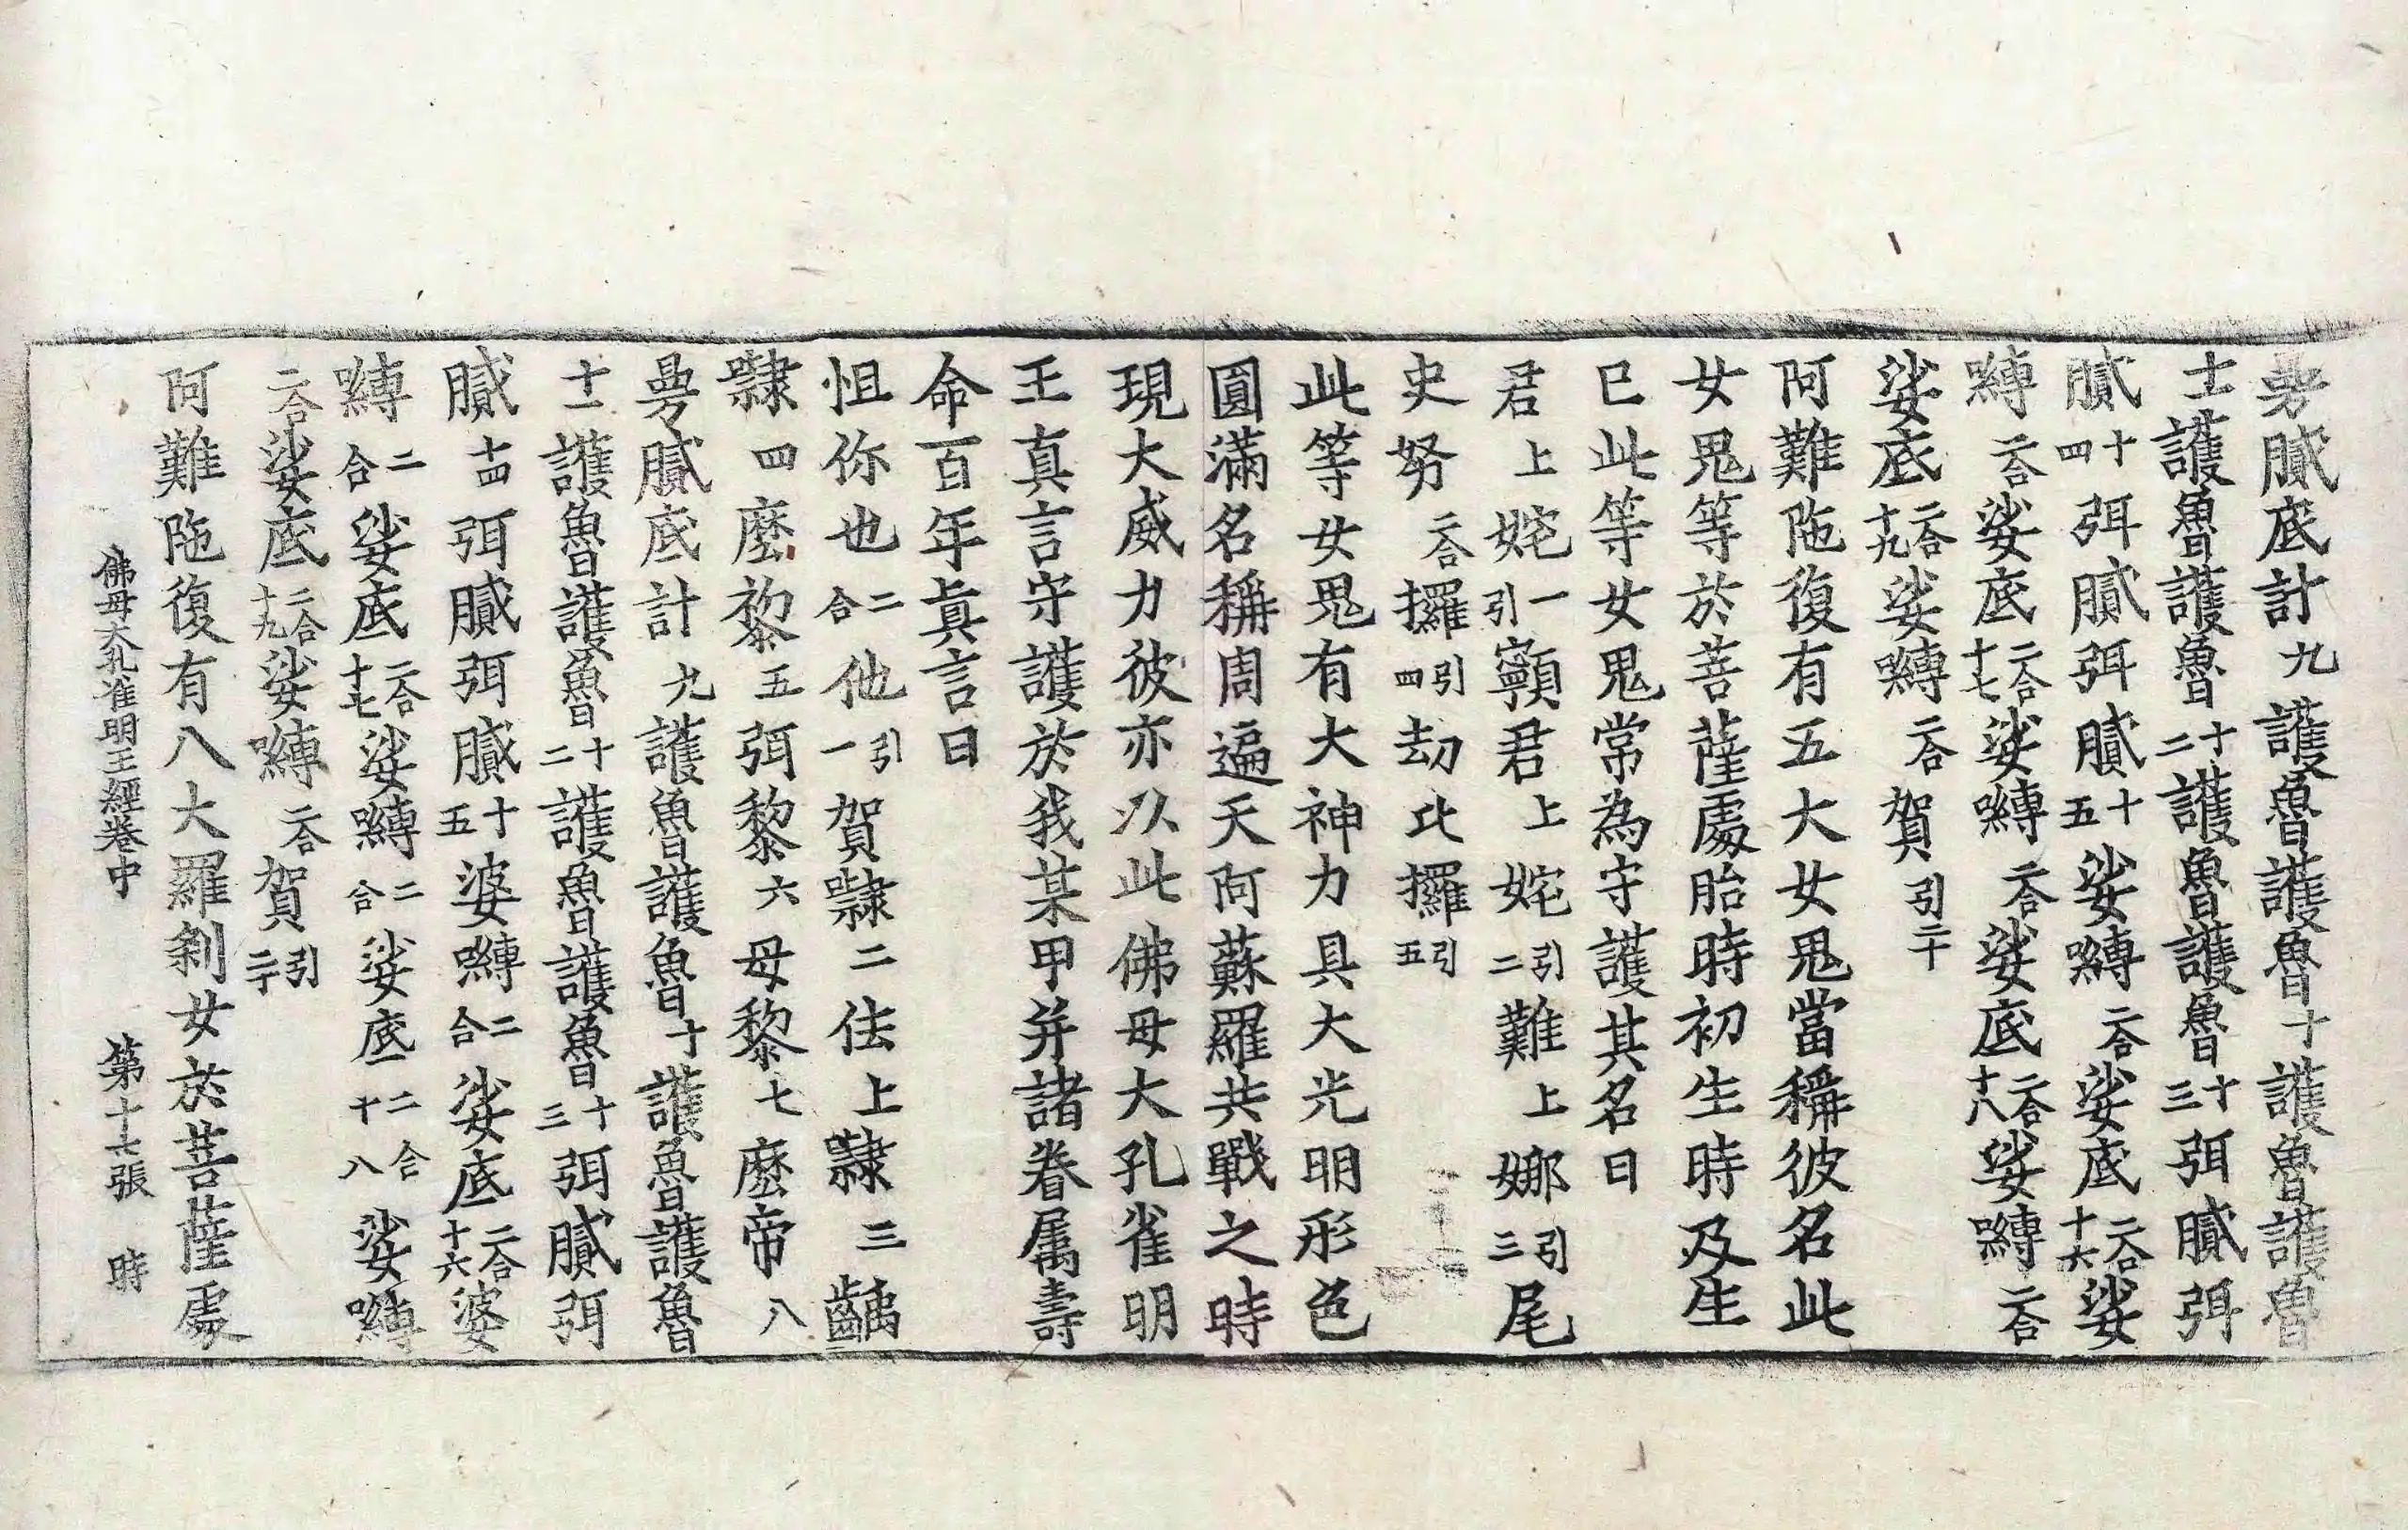 曼膩底計九護魯護魯十護魯護魯
十一護魯護魯十二護魯護魯十三弭膩弭
膩十四弭膩弭膩十五娑嚩二合娑底二合十六娑
嚩二合娑底二合十七娑嚩二合娑底二合十八娑嚩二合
娑底二合十九娑嚩二合賀引二十
阿難陁復有五大女鬼當稱彼名此
女鬼等於菩薩處胎時初生時及生
已此等女鬼常為守護其名曰
君上姹引一𩕳君上姹引二難上娜引三尾
史努二合攞引四劫比攞引五
此等女鬼有大神力具大光明形色
圓滿名稱周遍天阿蘇羅共戰之時
現大威力彼亦以此佛母大孔雀明
王真言守護於我某甲并諸眷属壽
命百年真言曰
怛你也二合他引一賀㘑二佉上㘑三齲
㘑四麼黎五弭黎六母黎七麼帝八
曼膩底計九護魯護魯十護魯護魯
十一護魯護魯十二護魯護魯十三弭膩弭
膩十四弭膩弭膩十五婆嚩二合娑底二合十六婆
嚩二合娑底二合十七娑嚩二合娑底二合十八娑嚩
二合娑底二合十九娑嚩二合賀引二十
阿難陁復有八大羅剎女於菩薩處
佛母大孔雀明王經卷中 第十七張 時